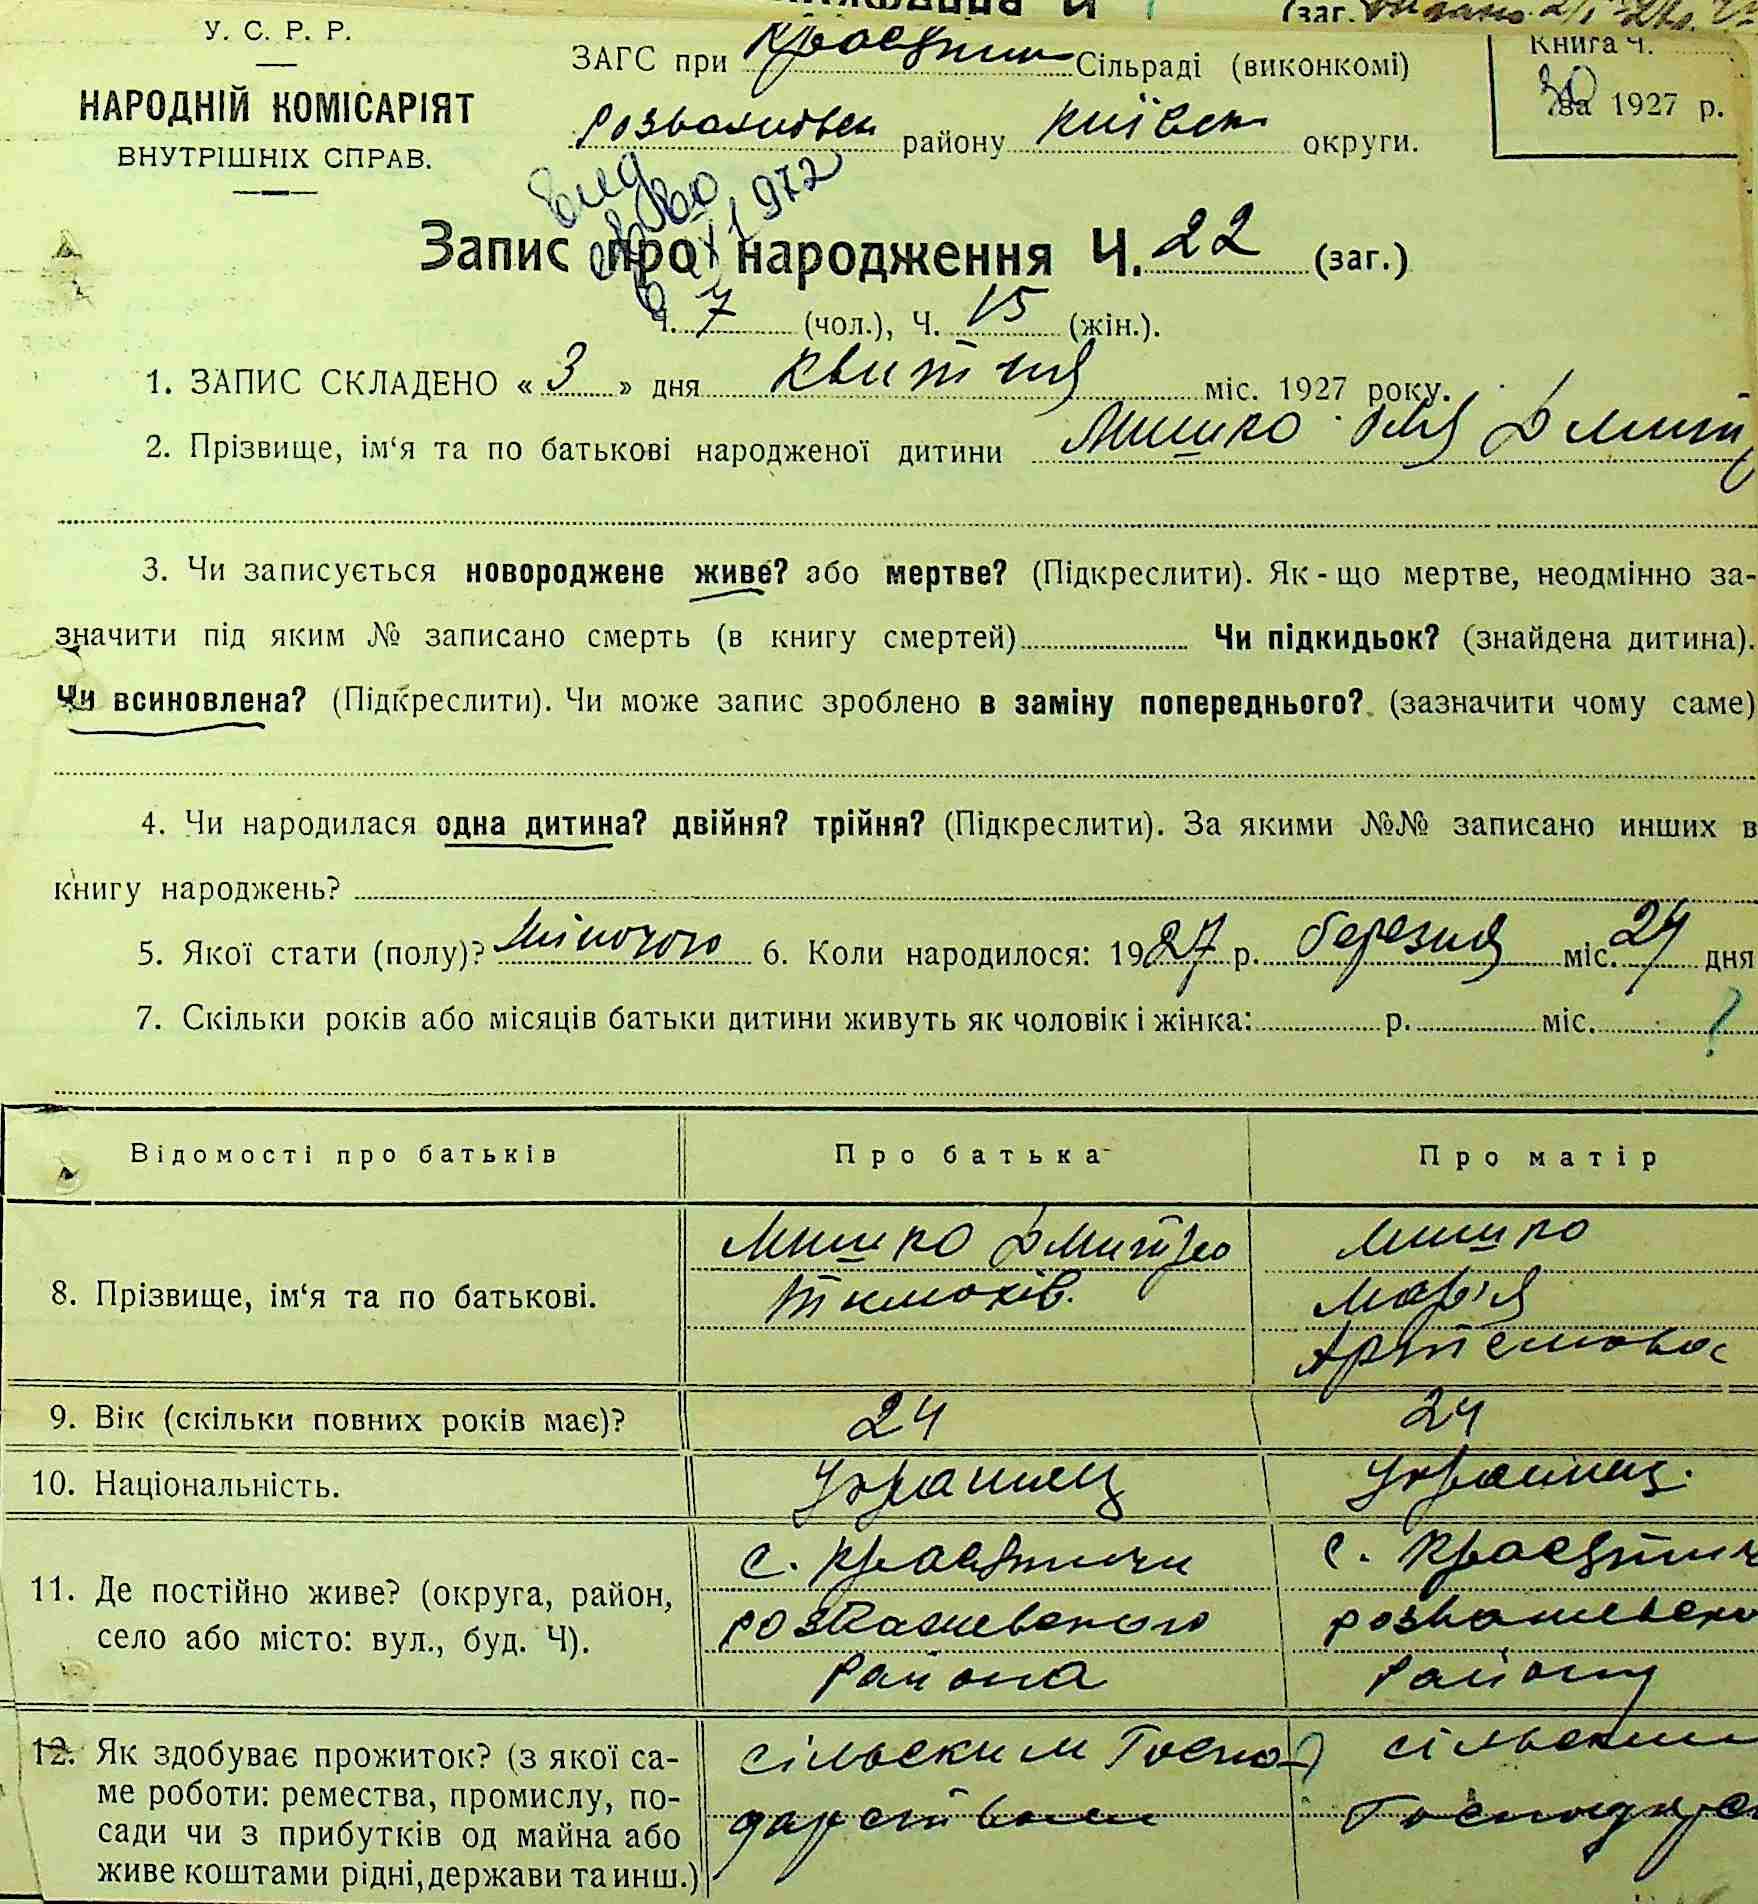 У. С. Р. Р.
НАРОДНІЙ КОМІСАРІЯТ
ВНУТРІШНІХ СПРАВ.
ЗАГС при Кравятин Сільраді (виконкомі)
Розважівськ району Київськ округи.
Книга Ч.
за 1927 р.
Запис про народження Ч. 22 (заг.)
Ч. 7 (чол.), Ч. 15 (жін.).
1. ЗАПИС СКЛАДЕНО «3» дня квитня міс. 1927 року.
2. Прізвище, ім‘я та по батькові народженої дитини Мишко Оля Дмит
3. Чи записується новороджене живе? або мертве? (Підкреслити). Як-що мертве, неодмінно за-
значити під яким № записано смерть (в книгу смертей) Чи підкидьок? (знайдена дитина).
Чи всиновлена? (Підкреслити). Чи може запис зроблено в заміну попереднього? (зазначити чому саме)
4. Чи народилася одна дитина? двійня? трійня? (Підкреслити). За якими №№ записано инших в
книгу народжень?
5. Якої стати (полу)? жіночого 6. Коли народилося: 1927 р. березня міс. 24 дня
7. Скільки років або місяців батьки дитини живуть як чоловік і жінка: р. міс. ?
Відомості про батьків Про батька Про матір
8. Прізвище, ім‘я та по батькові.
Мишко Дмитро
Тимохів.
Мишко
Мар'я
Артемова
9. Вік (скільки повних років має)? 24 24
10. Національність. Украинец Украинец.
11. Де постійно живе? (округа, район,
село або місто: вул., буд. Ч).
розважевського
района
розважевско
району
12. Як здобуває прожиток? (з якої са-
ме роботи: ремества, промислу, по-
сади чи з прибутків од майна або
живе коштами рідні, держави та инш.)
сільским Госпо-
дарством
сільским
Господарс